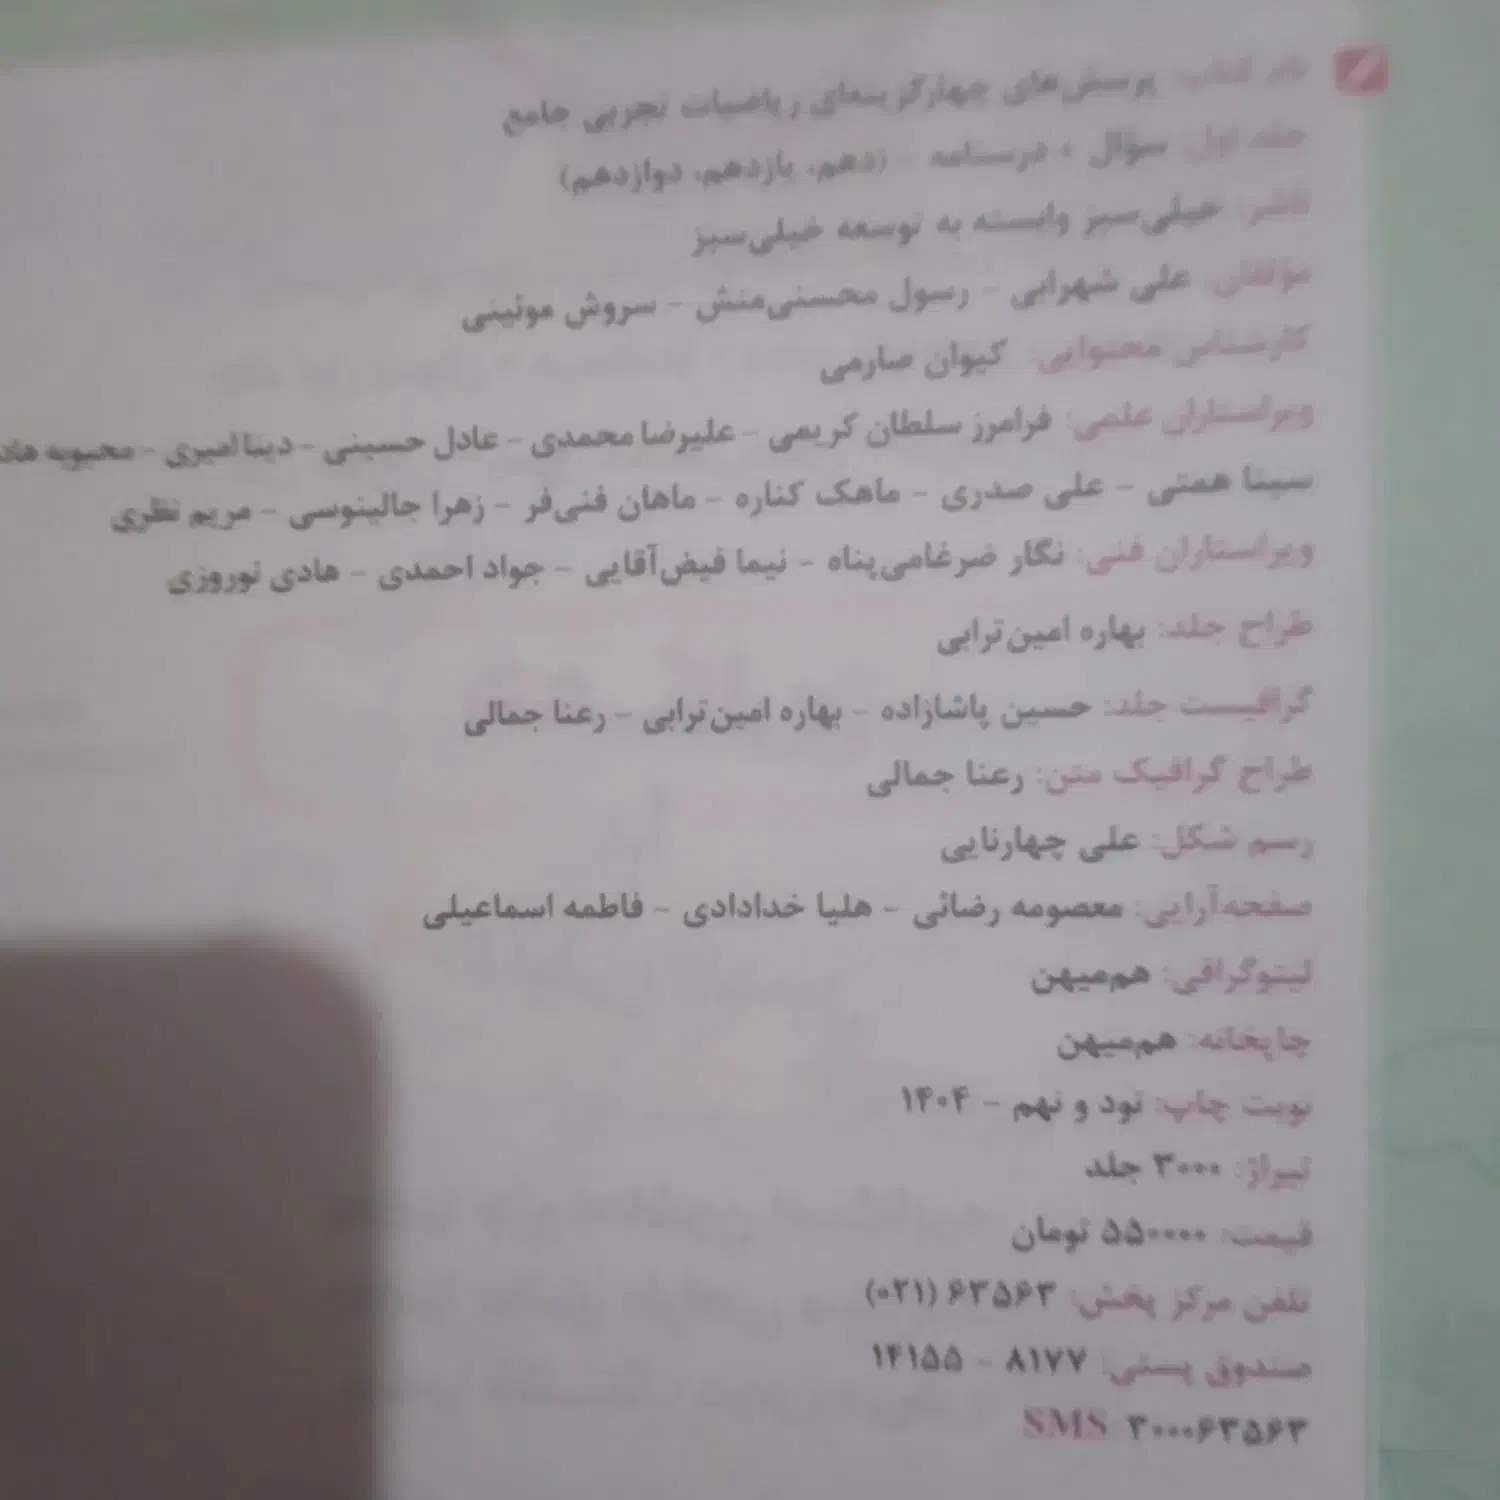 نام کتاب: پرسش‌های چهارگزینه‌ای ریاضیات تجربی جامع
جلد اول: سؤال + درسنامه - (دهم، یازدهم، دوازدهم)
ناشر: خیلی‌سبز وابسته به توسعه خیلی‌سبز
مؤلفان: علی شهرابی - رسول محسنی‌منش - سروش موئینی
کارشناس محتوایی: کیوان صارمی
ویراستاران علمی: فرامرز سلطان کریمی - علیرضا محمدی - عادل حسینی - دینا امیری - محبوبه
سینا همتی - علی صدری - ماهک کناره - ماهان فنی‌فر - زهرا جالینوسی - مریم نظری
ویراستاران فنی: نگار ضرغامی‌پناه - نیما فیض‌آقایی - جواد احمدی - هادی نوروزی
طراح جلد: بهاره امین‌ترابی
گرافیست جلد: حسین پاشازاده - بهاره امین‌ترابی - رعنا جمالی
طراح گرافیک متن: رعنا جمالی
رسم شکل: علی چهارنایی
صفحه‌آرایی: معصومه رضائی - هلیا خدادادی - فاطمه اسماعیلی
لیتوگرافی: هم‌میهن
چاپخانه: هم‌میهن
نوبت چاپ: نود و نهم - ۱۴۰۴
تیراژ: ۳۰۰۰ جلد
قیمت: ۵۵۰۰۰۰ تومان
تلفن مرکز پخش: ۶۳۵۶۳ (۰۲۱)
صندوق پستی: ۸۱۷۷ - ۱۴۱۵۵
SMS ۳۰۰۰۶۳۵۶۳